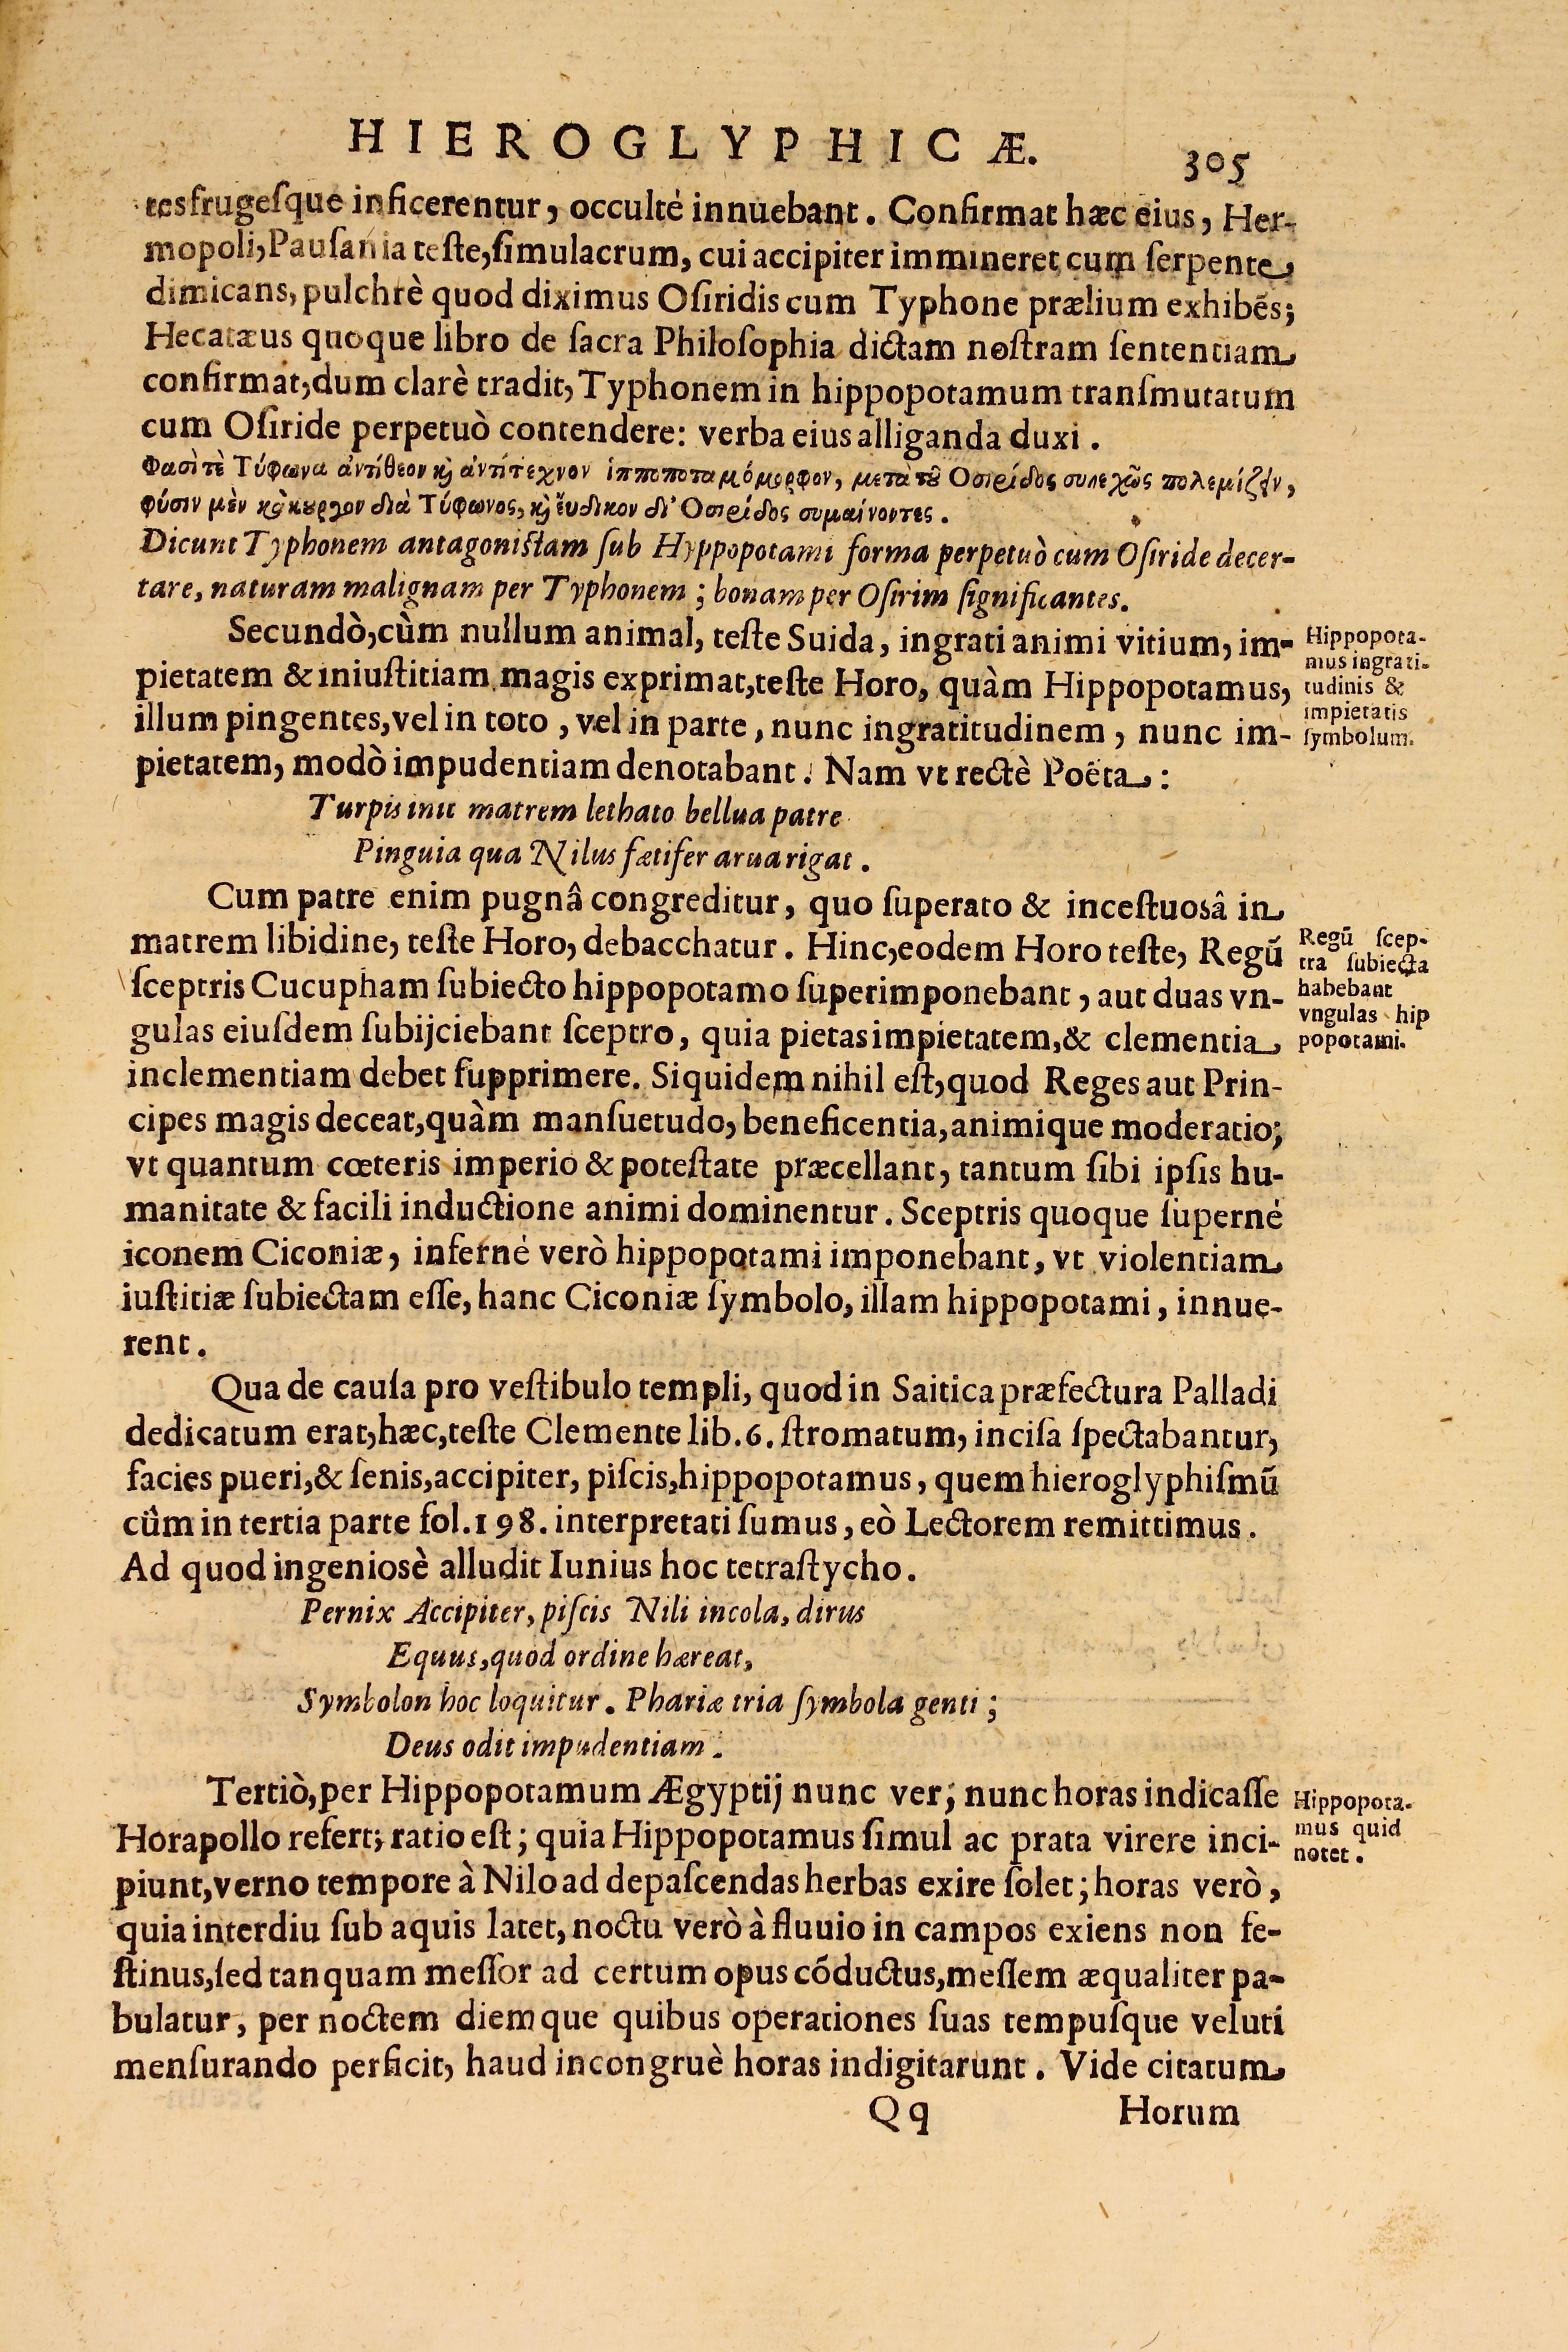 HIEROGLYPHICÆ. 305
tesfrugesque inficerentur, occulté innuebant. Confirmat hæc eius, Her-
mopoli, Pausania teste, simulacrum, cui accipiter immineret cum serpente
dimicans, pulchrè quod diximus Osiridis cum Typhone prælium exhibēs;
Hecatæus quoque libro de sacra Philosophia dictam nostram sententiam
confirmat, dum clarè tradit, Typhonem in hippopotamum transmutatum
cum Osiride perpetuò contendere: verba eius alliganda duxi.
Φασὶ τὲ Τύφωνα ἀντίθεον κὶ ἀντίτεχνον ἱπποποταμόμορφον, μετὰ τοῦ Οσιρίδος συνεχῶς πολεμίζειν,
φύσιν μὲν κακοῦργον διὰ Τύφωνος, κὶ ἔυδικον δι' Οσιρίδος συμαίνοντες.
Dicunt Typhonem antagonistam sub Hyppopotami forma perpetuò cum Osiride decer-
tare, naturam malignam per Typhonem; bonam per Osirim significantes.
Secundò, cùm nullum animal, teste Suida, ingrati animi vitium, im-
pietatem & iniustitiam magis exprimat, teste Horo, quàm Hippopotamus,
illum pingentes, vel in toto, vel in parte, nunc ingratitudinem, nunc im-
pietatem, modò impudentiam denotabant. Nam vt rectè Poëta:
Hippopota-
mus ingrati-
tudinis &
impietatis
symbolum.
Turpis init matrem lethato bellua patre
Pinguia qua Nilus fætifer arua rigat.
Cum patre enim pugnâ congreditur, quo superato & incestuosâ in
matrem libidine, teste Horo, debacchatur. Hinc, eodem Horo teste, Regū
sceptris Cucupham subiecto hippopotamo superimponebant, aut duas vn-
gulas eiusdem subijciebant sceptro, quia pietas impietatem, & clementia
inclementiam debet supprimere. Siquidem nihil est, quod Reges aut Prin-
cipes magis deceat, quàm mansuetudo, beneficentia, animique moderatio;
vt quantum cœteris imperio & potestate præcellant, tantum sibi ipsis hu-
manitate & facili inductione animi dominentur. Sceptris quoque superné
iconem Ciconiæ, inferné verò hippopotami imponebant, vt violentiam
iustitiæ subiectam esse, hanc Ciconiæ symbolo, illam hippopotami, innue-
rent.
Regū scep-
tra subiecta
habebant
vngulas hip
popotami.
Qua de causa pro vestibulo templi, quod in Saitica præfectura Palladi
dedicatum erat, hæc, teste Clemente lib. 6. stromatum, incisa spectabantur,
facies pueri, & senis, accipiter, piscis, hippopotamus, quem hieroglyphismū
cûm in tertia parte fol. 198. interpretati sumus, eò Lectorem remittimus.
Ad quod ingeniosè alludit Iunius hoc tetrastycho.
Pernix Accipiter, piscis Nili incola, dirus
Equus, quod ordine hæreat,
Symbolon hoc loquitur. Phariæ tria symbola genti;
Deus odit impudentiam.
Tertiò, per Hippopotamum Ægyptij nunc ver; nunc horas indicasse
Horapollo refert; ratio est; quia Hippopotamus simul ac prata virere inci-
piunt, verno tempore à Nilo ad depascendas herbas exire solet; horas verò,
quia interdiu sub aquis latet, noctu verò à fluuio in campos exiens non fe-
stinus, sed tanquam messor ad certum opus cōductus, messem æqualiter pa-
bulatur, per noctem diemque quibus operationes suas tempusque veluti
mensurando perficit, haud incongruè horas indigitarunt. Vide citatum
Hippopota-
mus quid
notet.
Qq Horum